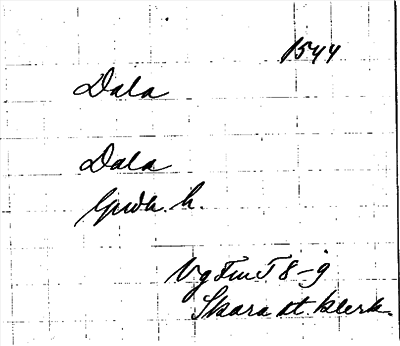 1544
Dala
Dala
Gudh. h.
VgFmT 8-9
Skara st. klerk.